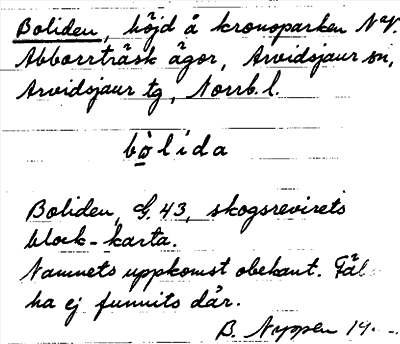 Boliden, höjd å kronoparken N av.
Abborrträsk ägor, Arvidsjaur sn,
Arvidsjaur tg, Norrb. l.
bòlida
Boliden, G. 43, skogsrevirets
block-karta.
Namnets uppkomst obekant. Fäl
ha ej funnits där.
B. Nyppen 19